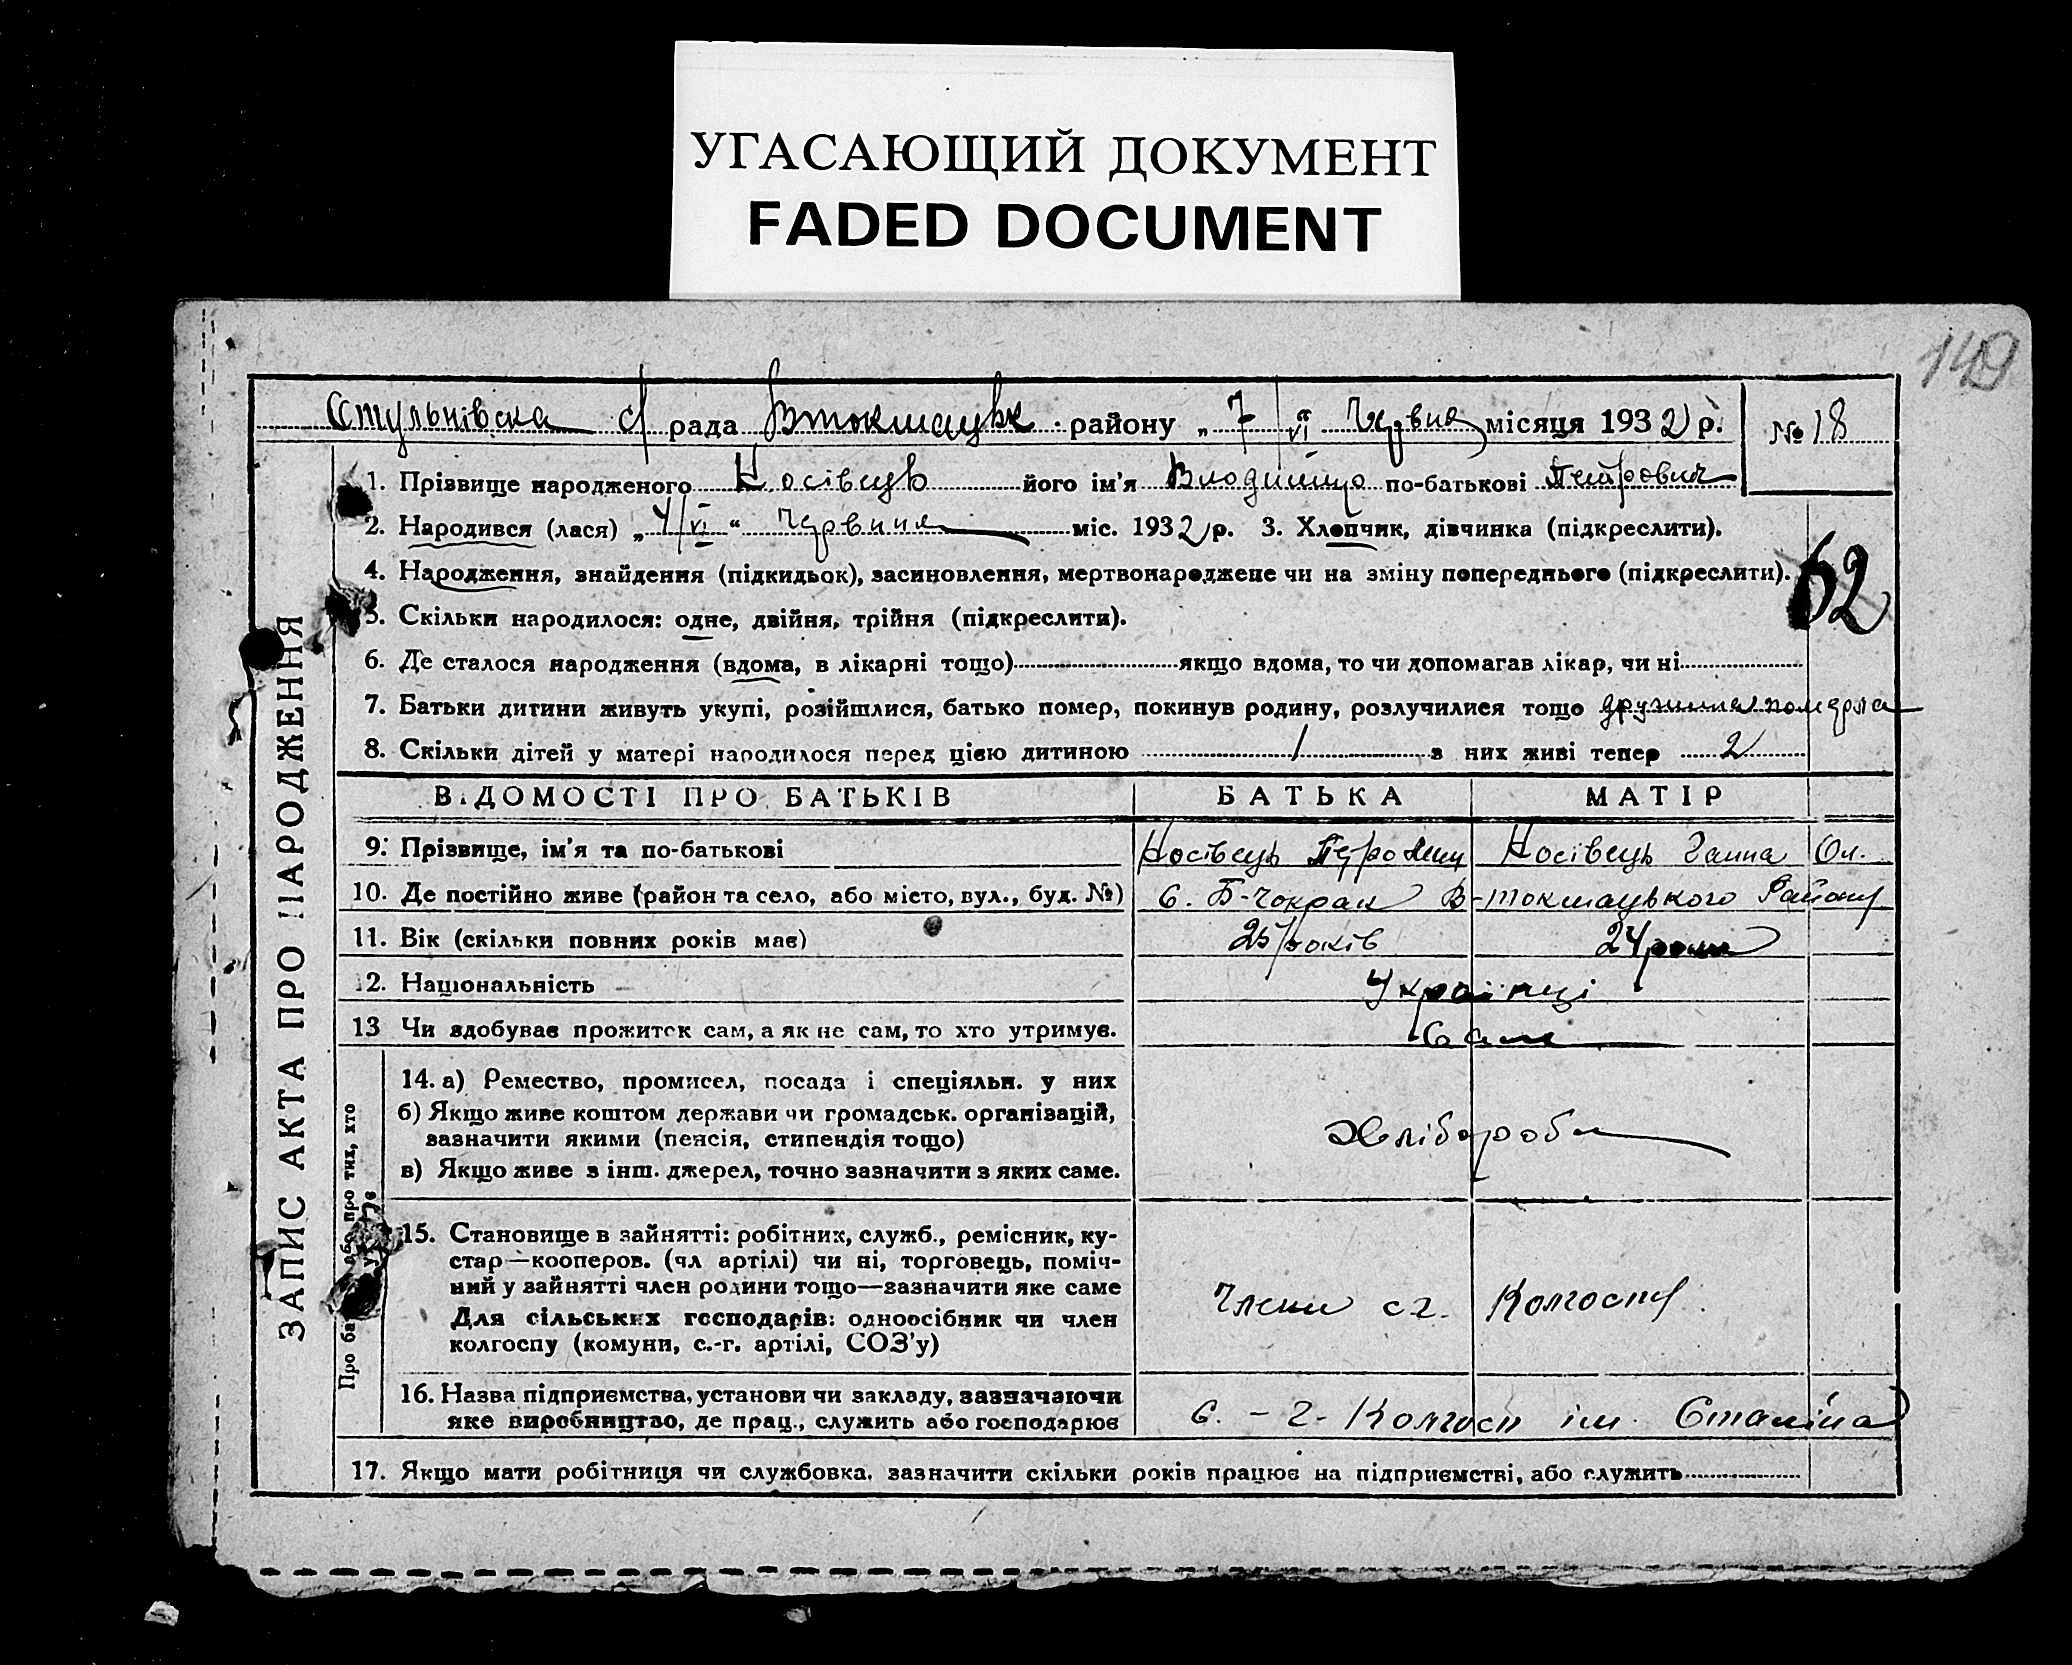 УГАСАЮЩИЙ ДОКУМЕНТ
FADED DOCUMENT
149
Стульнівська с/ рада Втокмацьк. району „ 7/VI “ Червня місяця 1932 р. № 18
1. Прізвище народженого Носівець його ім'я Володимир по-батькові Петрович
2. Народився (лася) „ 4/VI “ червния міс. 1932 р. 3. Хлопчик, дівчинка (підкреслити).
4. Народження, знайдення (підкидьок), засиновлення, мертвонароджене чи на зміну попереднього (підкреслити).
62
5. Скільки народилося: одне, двійня, трійня (підкреслити).
6. Де сталося народження (вдома, в лікарні тощо) якщо вдома, то чи допомагав лікар, чи ні
7. Батьки дитини живуть укупі, розійшлися, батько помер, покинув родину, розлучилися тощо дружина померла
8. Скільки дітей у матері народилося перед цією дитиною 1 з них живі тепер 2
ВІДОМОСТІ ПРО БАТЬКІВ БАТЬКА МАТІР
9. Прізвище, ім'я та по-батькові Носівець Петро Носівець Ганна Ол.
10. Де постійно живе (район та село, або місто, вул., буд. №) с. Б-Чокрак В-токмацького Району
11. Вік (скільки повних років має) 25 років 24 роки
12. Національність Українці
13 Чи здобуває прожиток сам, а як не сам, то хто утримує. Сам
14. а) Ремество, промисел, посада і спеціяльн. у них
б) Якщо живе коштом держави чи громадськ. організацій,
зазначити якими (пенсія, стипендія тощо)
Хлібороби
в) Якщо живе з інш. джерел, точно зазначити з яких саме.
15. Становище в зайнятті: робітник, служб., ремісник, ку-
стар—кооперов. (чл артілі) чи ні, торговець, поміч-
ний у зайнятті член родини тощо—зазначити яке саме
Члени сг. Колгоспу.
Для сільських господарів: одноосібник чи член
колгоспу (комуни, с.-г. артілі, СОЗ'у)
16. Назва підприємства, установи чи закладу, зазначаючи
яке виробництво, де прац., служить або господарює с. - г. Колгосп ім. Сталіна
17. Якщо мати робітниця чи службовка, зазначити скільки років працює на підприємстві, або служить
ЗАПИС АКТА ПРО НАРОДЖЕННЯ
Про ба або про тих, хто